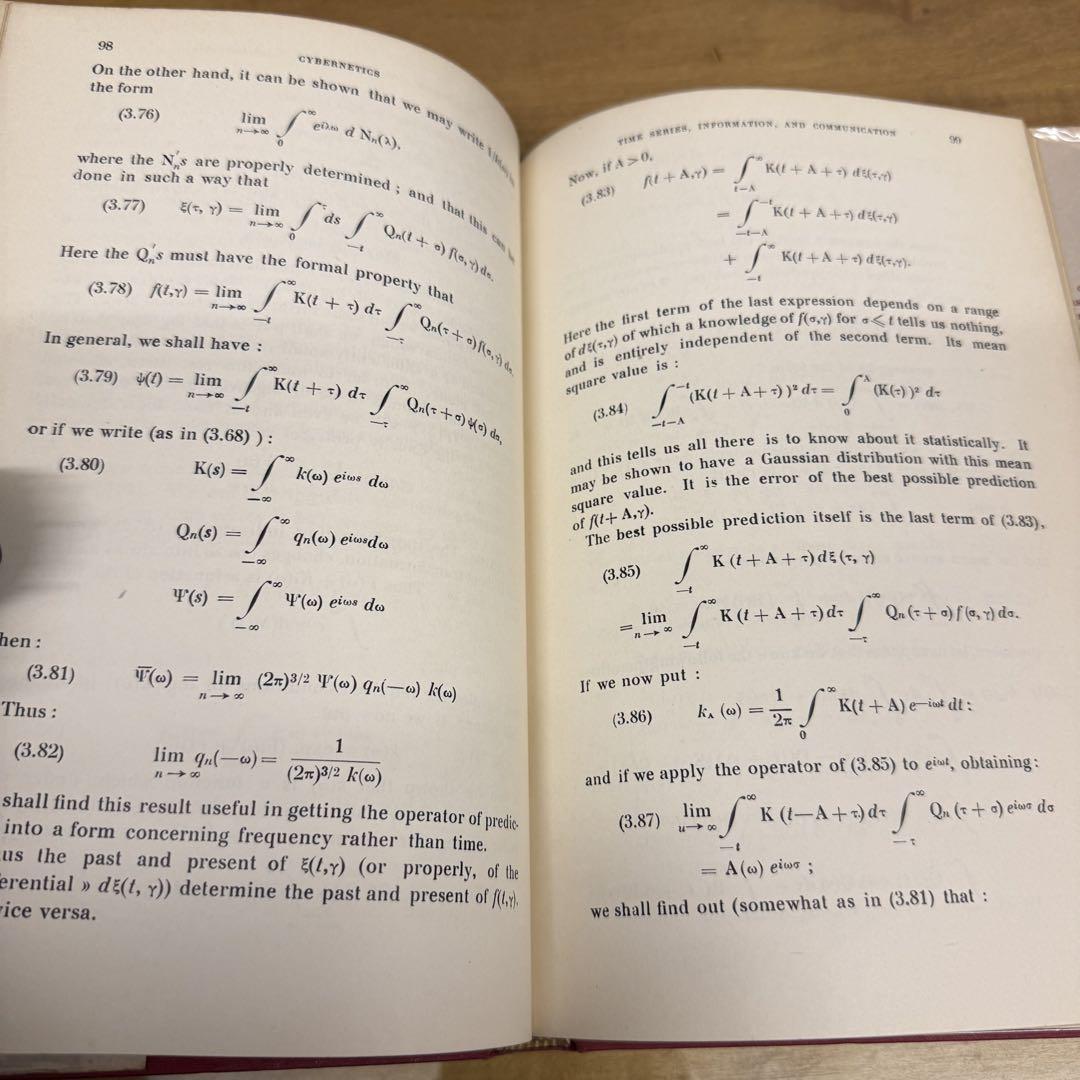 98
CYBERNETICS
On the other hand, it can be shown that we may write
the form
(3.76) lim n→∞ ∫₀^∞ e^{iλω} d Nₙ(λ),
where the Nₙ's are properly determined ; and that this can be
done in such a way that
(3.77) ξ(τ, γ) = lim n→∞ ∫₀^τ ds ∫₋ₜ^∞ Qₙ(t + σ) f(σ, γ) dσ.
Here the Qₙ's must have the formal property that
(3.78) f(t,γ) = lim n→∞ ∫₋ₜ^∞ K(t + τ) dτ ∫_{−τ}^∞ Qₙ(τ + σ) f(σ, γ) dσ.
In general, we shall have :
(3.79) ψ(t) = lim n→∞ ∫₋ₜ^∞ K(t + τ) dτ ∫_{−τ}^∞ Qₙ(τ + σ) ψ(σ) dσ,
or if we write (as in (3.68) ) :
(3.80) K(s) = ∫_{−∞}^∞ k(ω) e^{iωs} dω
Qₙ(s) = ∫_{−∞}^∞ qₙ(ω) e^{iωs} dω
Ψ(s) = ∫_{−∞}^∞ Ψ(ω) e^{iωs} dω
hen :
(3.81) Ψ̅(ω) = lim n→∞ (2π)^{3/2} Ψ(ω) qₙ(−ω) k(ω)
Thus :
(3.82) lim n→∞ qₙ(−ω) = 1 / (2π)^{3/2} k(ω)
shall find this result useful in getting the operator of predic-
into a form concerning frequency rather than time.
us the past and present of ξ(t,γ) (or properly, of the
erential » dξ(t, γ)) determine the past and present of f(t,γ),
vice versa.
TIME SERIES, INFORMATION, AND COMMUNICATION
99
Now, if A > 0,
(3.83) f(t + A,γ) = ∫_{t−A}^∞ K(t + A + τ) dξ(τ,γ)
= ∫_{−t−A}^{−t} K(t + A + τ) dξ(τ,γ)
+ ∫_{−t}^∞ K(t + A + τ) dξ(τ,γ).
Here the first term of the last expression depends on a range
of dξ(τ,γ) of which a knowledge of f(σ,γ) for σ ⩽ t tells us nothing,
and is entirely independent of the second term. Its mean
square value is :
(3.84) ∫_{−t−A}^{−t} (K(t + A + τ) )² dτ = ∫₀^A (K(τ) )² dτ
and this tells us all there is to know about it statistically. It
may be shown to have a Gaussian distribution with this mean
square value. It is the error of the best possible prediction
of f(t+ A,γ).
The best possible prediction itself is the last term of (3.83),
(3.85) ∫_{−t}^∞ K (t + A + τ) dξ (τ, γ)
= lim n→∞ ∫_{−t}^∞ K (t + A + τ) dτ ∫_{−τ}^∞ Qₙ (τ + σ) f (σ, γ) dσ.
If we now put :
(3.86) k_A (ω) = 1/2π ∫₀^∞ K(t + A) e^{−iωt} dt :
and if we apply the operator of (3.85) to e^{iωt}, obtaining :
(3.87) lim u→∞ ∫_{−t}^∞ K (t—A + τ) dτ ∫_{−τ}^∞ Qₙ (τ + σ) e^{iωσ} dσ
= A(ω) e^{iωσ} ;
we shall find out (somewhat as in (3.81) that :